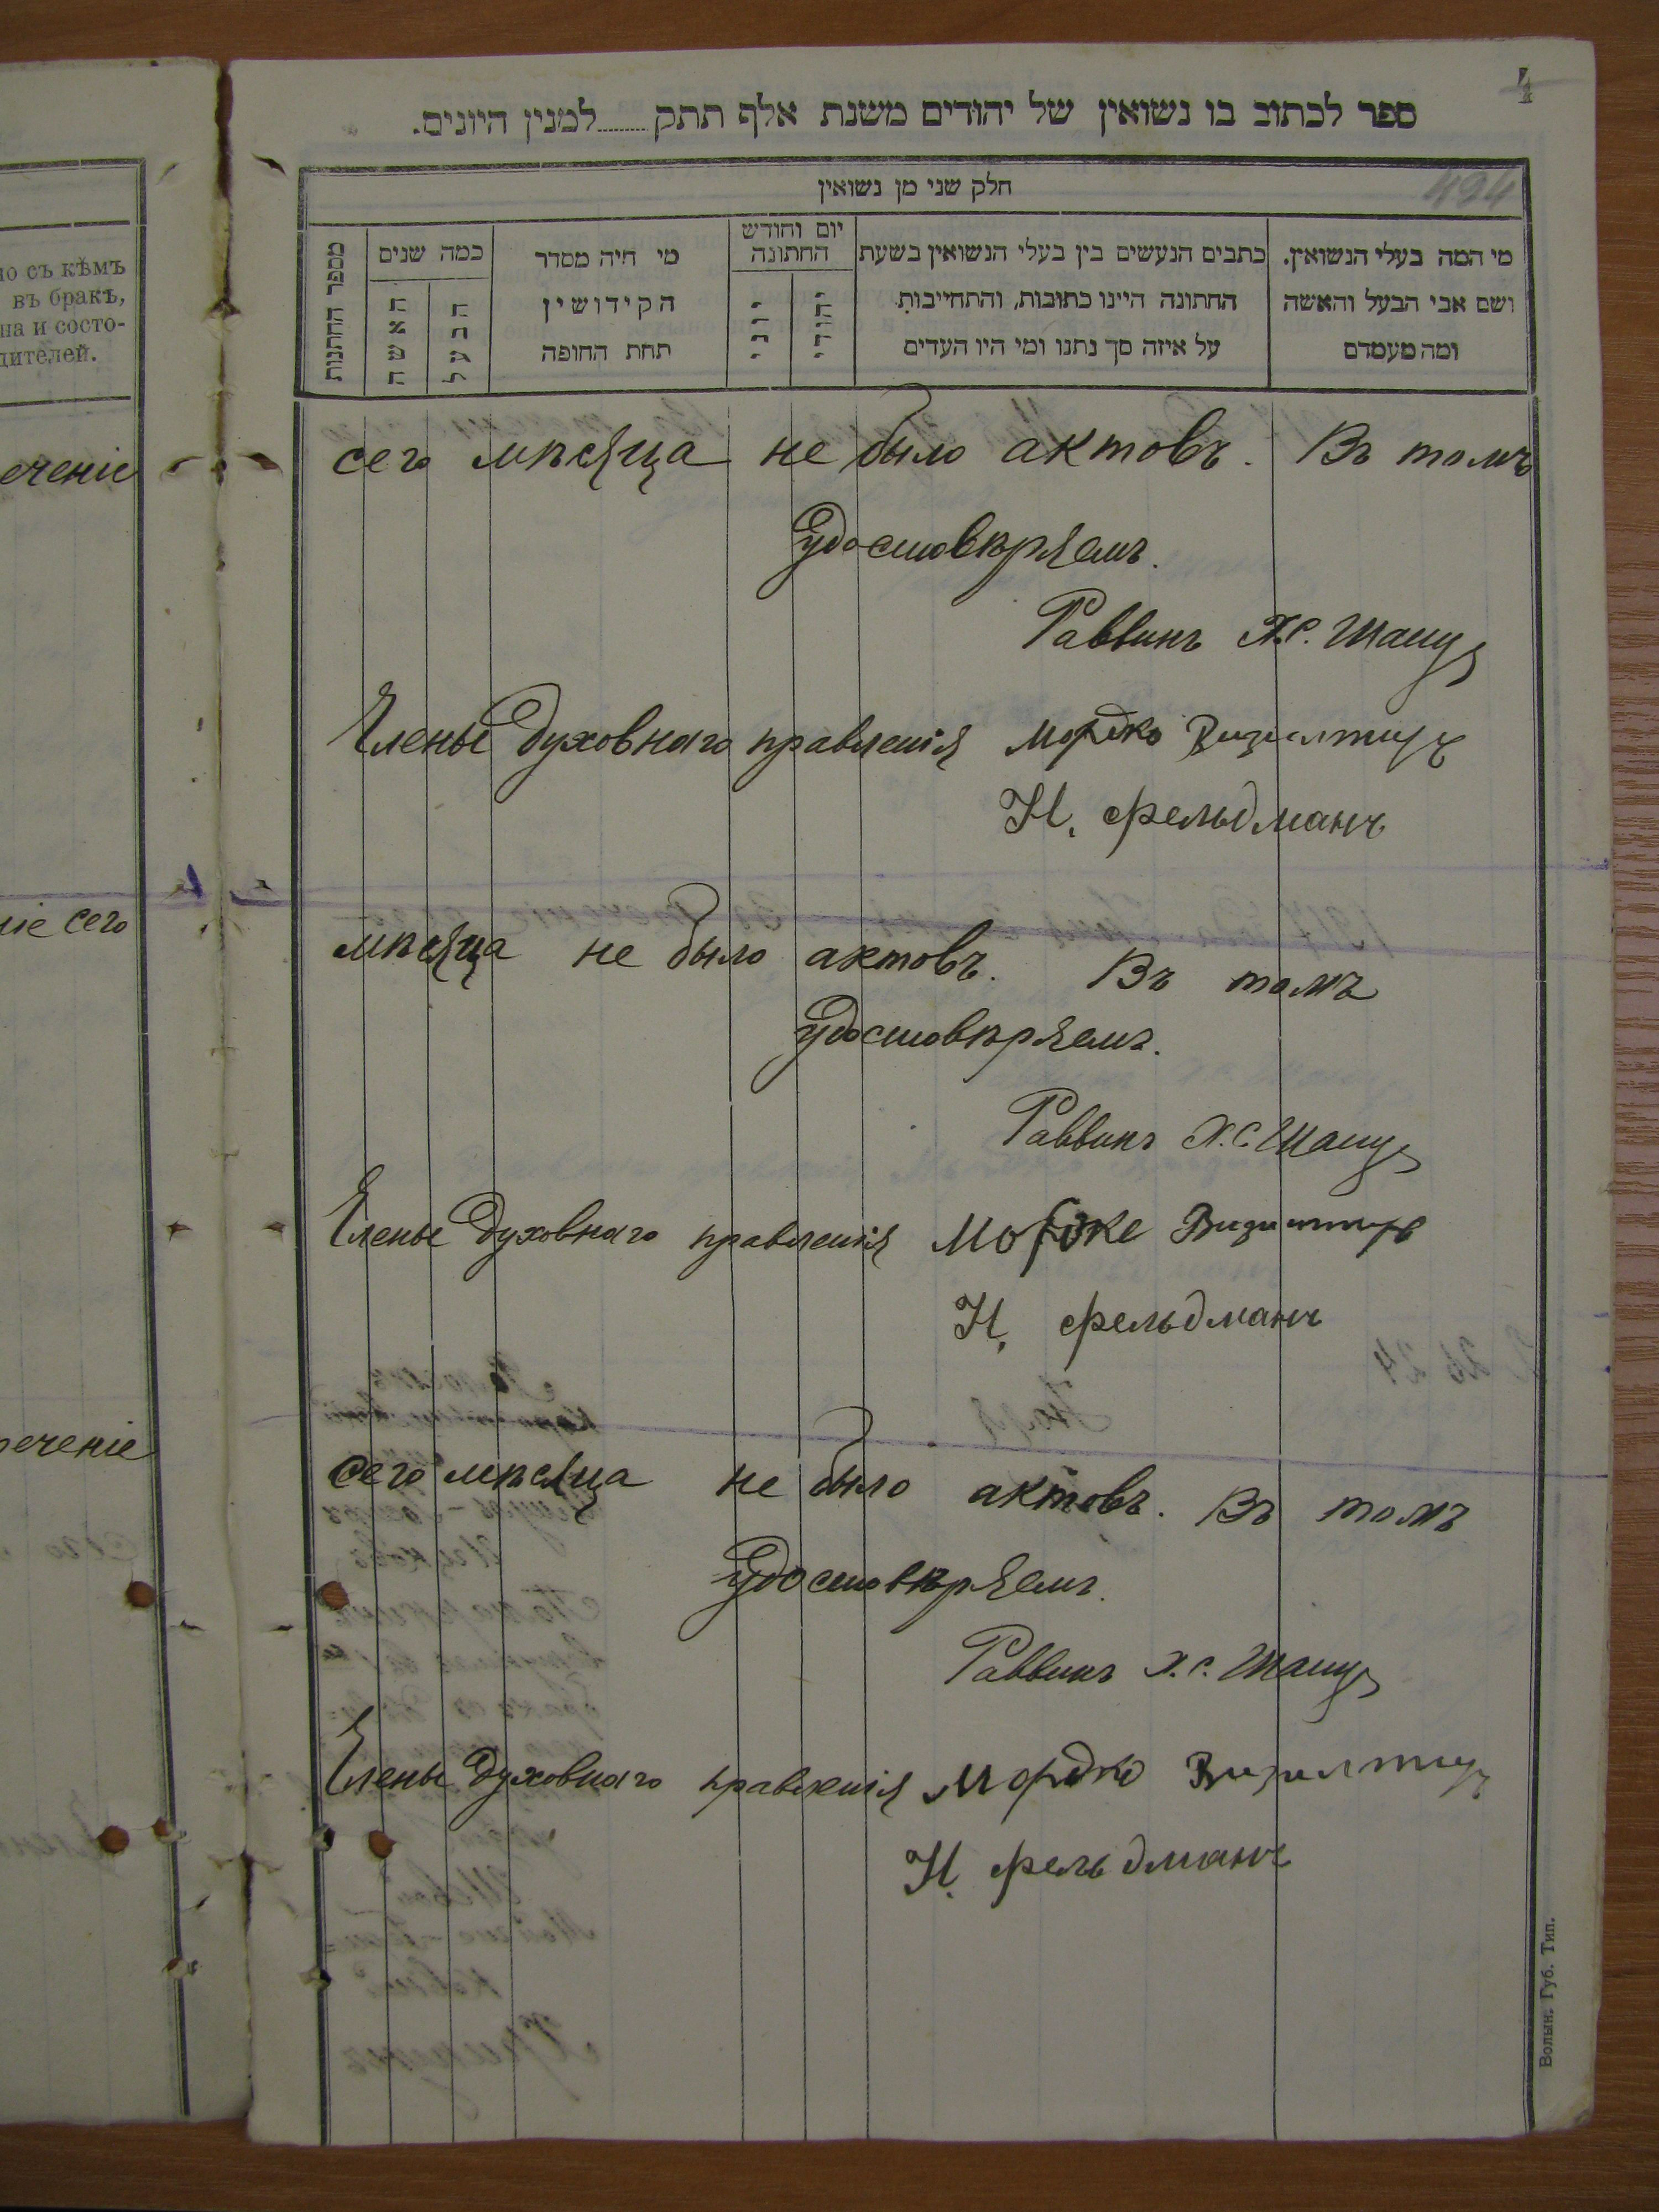 4
ספר לכתוב בו נשואין של יהודים משנת אלף תתק........למנין היונים.
494
חלק שני מן נשואין
מי המה בעלי הנשואין.
ושם אבי הבעל והאשה
ומה מעמדם
כתבים הנעשים בין בעלי הנשואין בשעת
החתונה היינו כתובות, והתחייבות.
על איזה סך נתנו ומי היו העדים
יום וחודש
החתונה
יהודי
יוני
מי חיה מסדר
הקידושין
תחת החופה
כמה שנים
הבעל
האשה
מספר החתונות
но съ кѣмъ
въ бракѣ,
на и состо-
дителей.
еченіе
сего мѣсяца не было актовъ. Въ томъ
удостовѣряемъ.
Раввинъ Х.С.
Члены Духовнаго правленія Мордко
Н. Фельдманъ
ніе сего
мѣсяца не было актовъ. Въ томъ
удостовѣряемъ.
Раввинъ Х.С.
Члены Духовнаго правленія Мордке
Н. Фельдманъ
еченіе
сего мѣсяца не было актовъ. Въ томъ
удостовѣряемъ.
Раввинъ Х.С.
Члены Духовнаго правленія Мордко
Н. Фельдманъ
Волын. Губ. Тип.